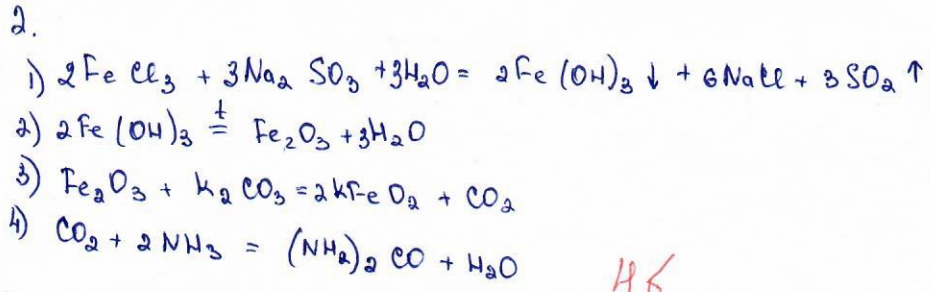 2.
1) 2FeCl₃ + 3Na₂SO₃ + 3H₂O = 2Fe(OH)₃↓ + 6NaCl + 3SO₂↑
2) 2Fe(OH)₃ t= Fe₂O₃ + 3H₂O
3) Fe₂O₃ + K₂CO₃ = 2KFeO₂ + CO₂
4) CO₂ + 2NH₃ = (NH₂)₂CO + H₂O
4б